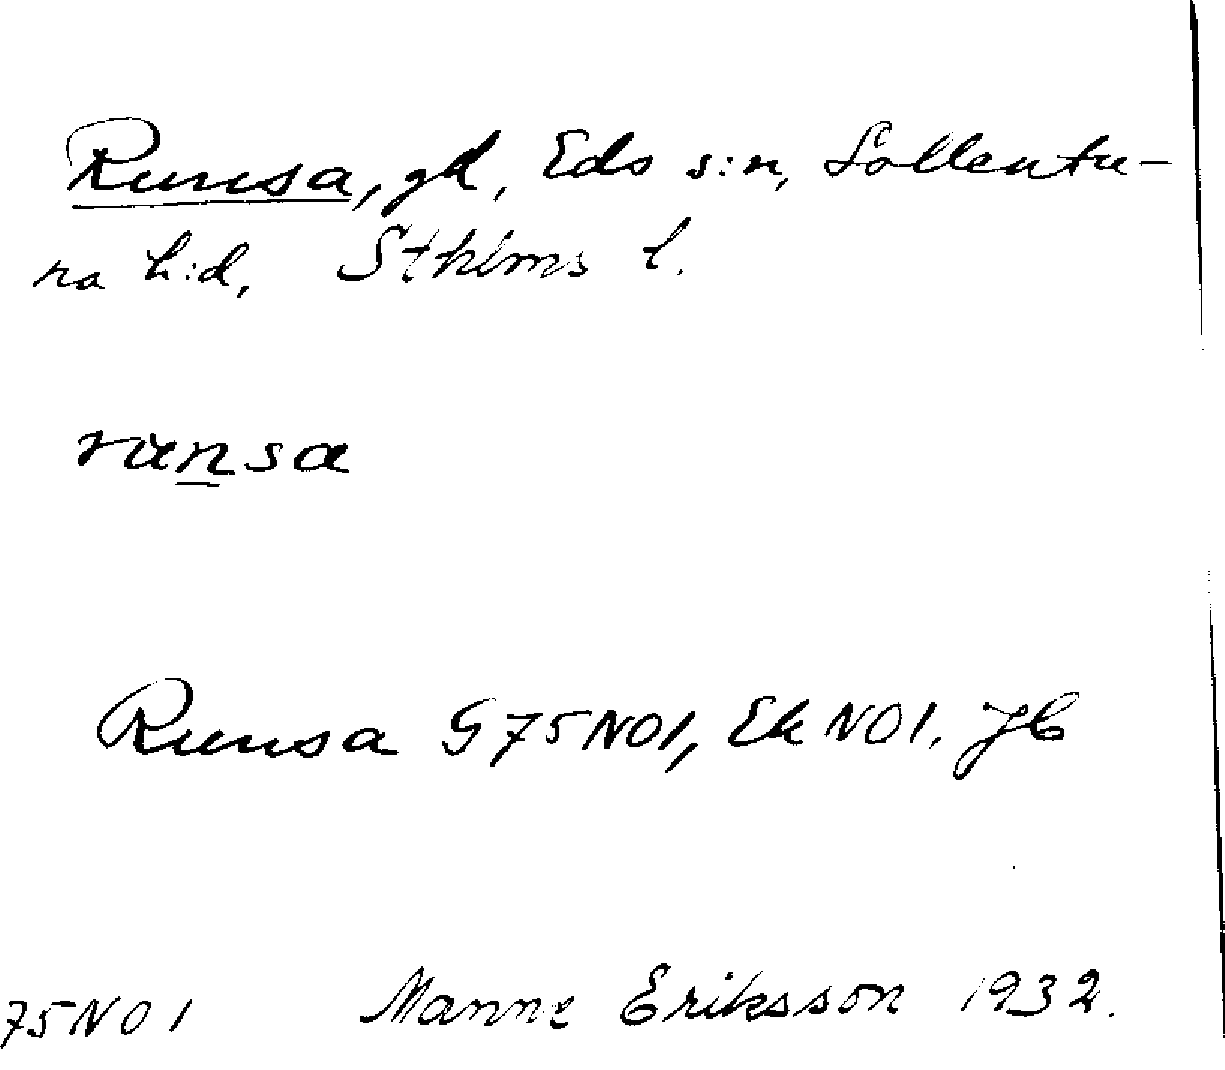 Runsa, gd, Eds s:n, Sollentu-
na h:d, Sthlms l.
runsa
Runsa G 75 NO1, Ek NO1, JB
75 NO 1 Manne Eriksson 1932.